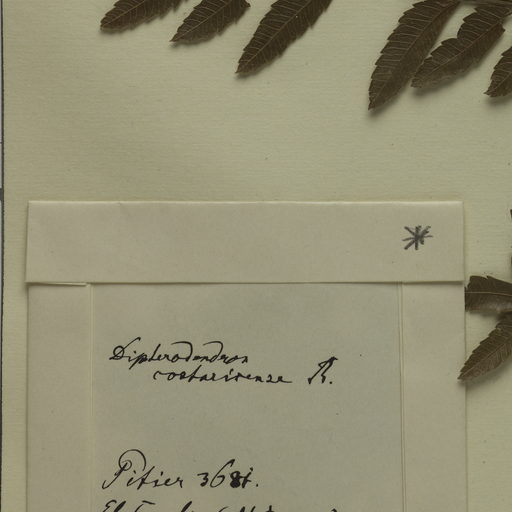 Dipterodendron
costaricense R.
Pitier 3681.